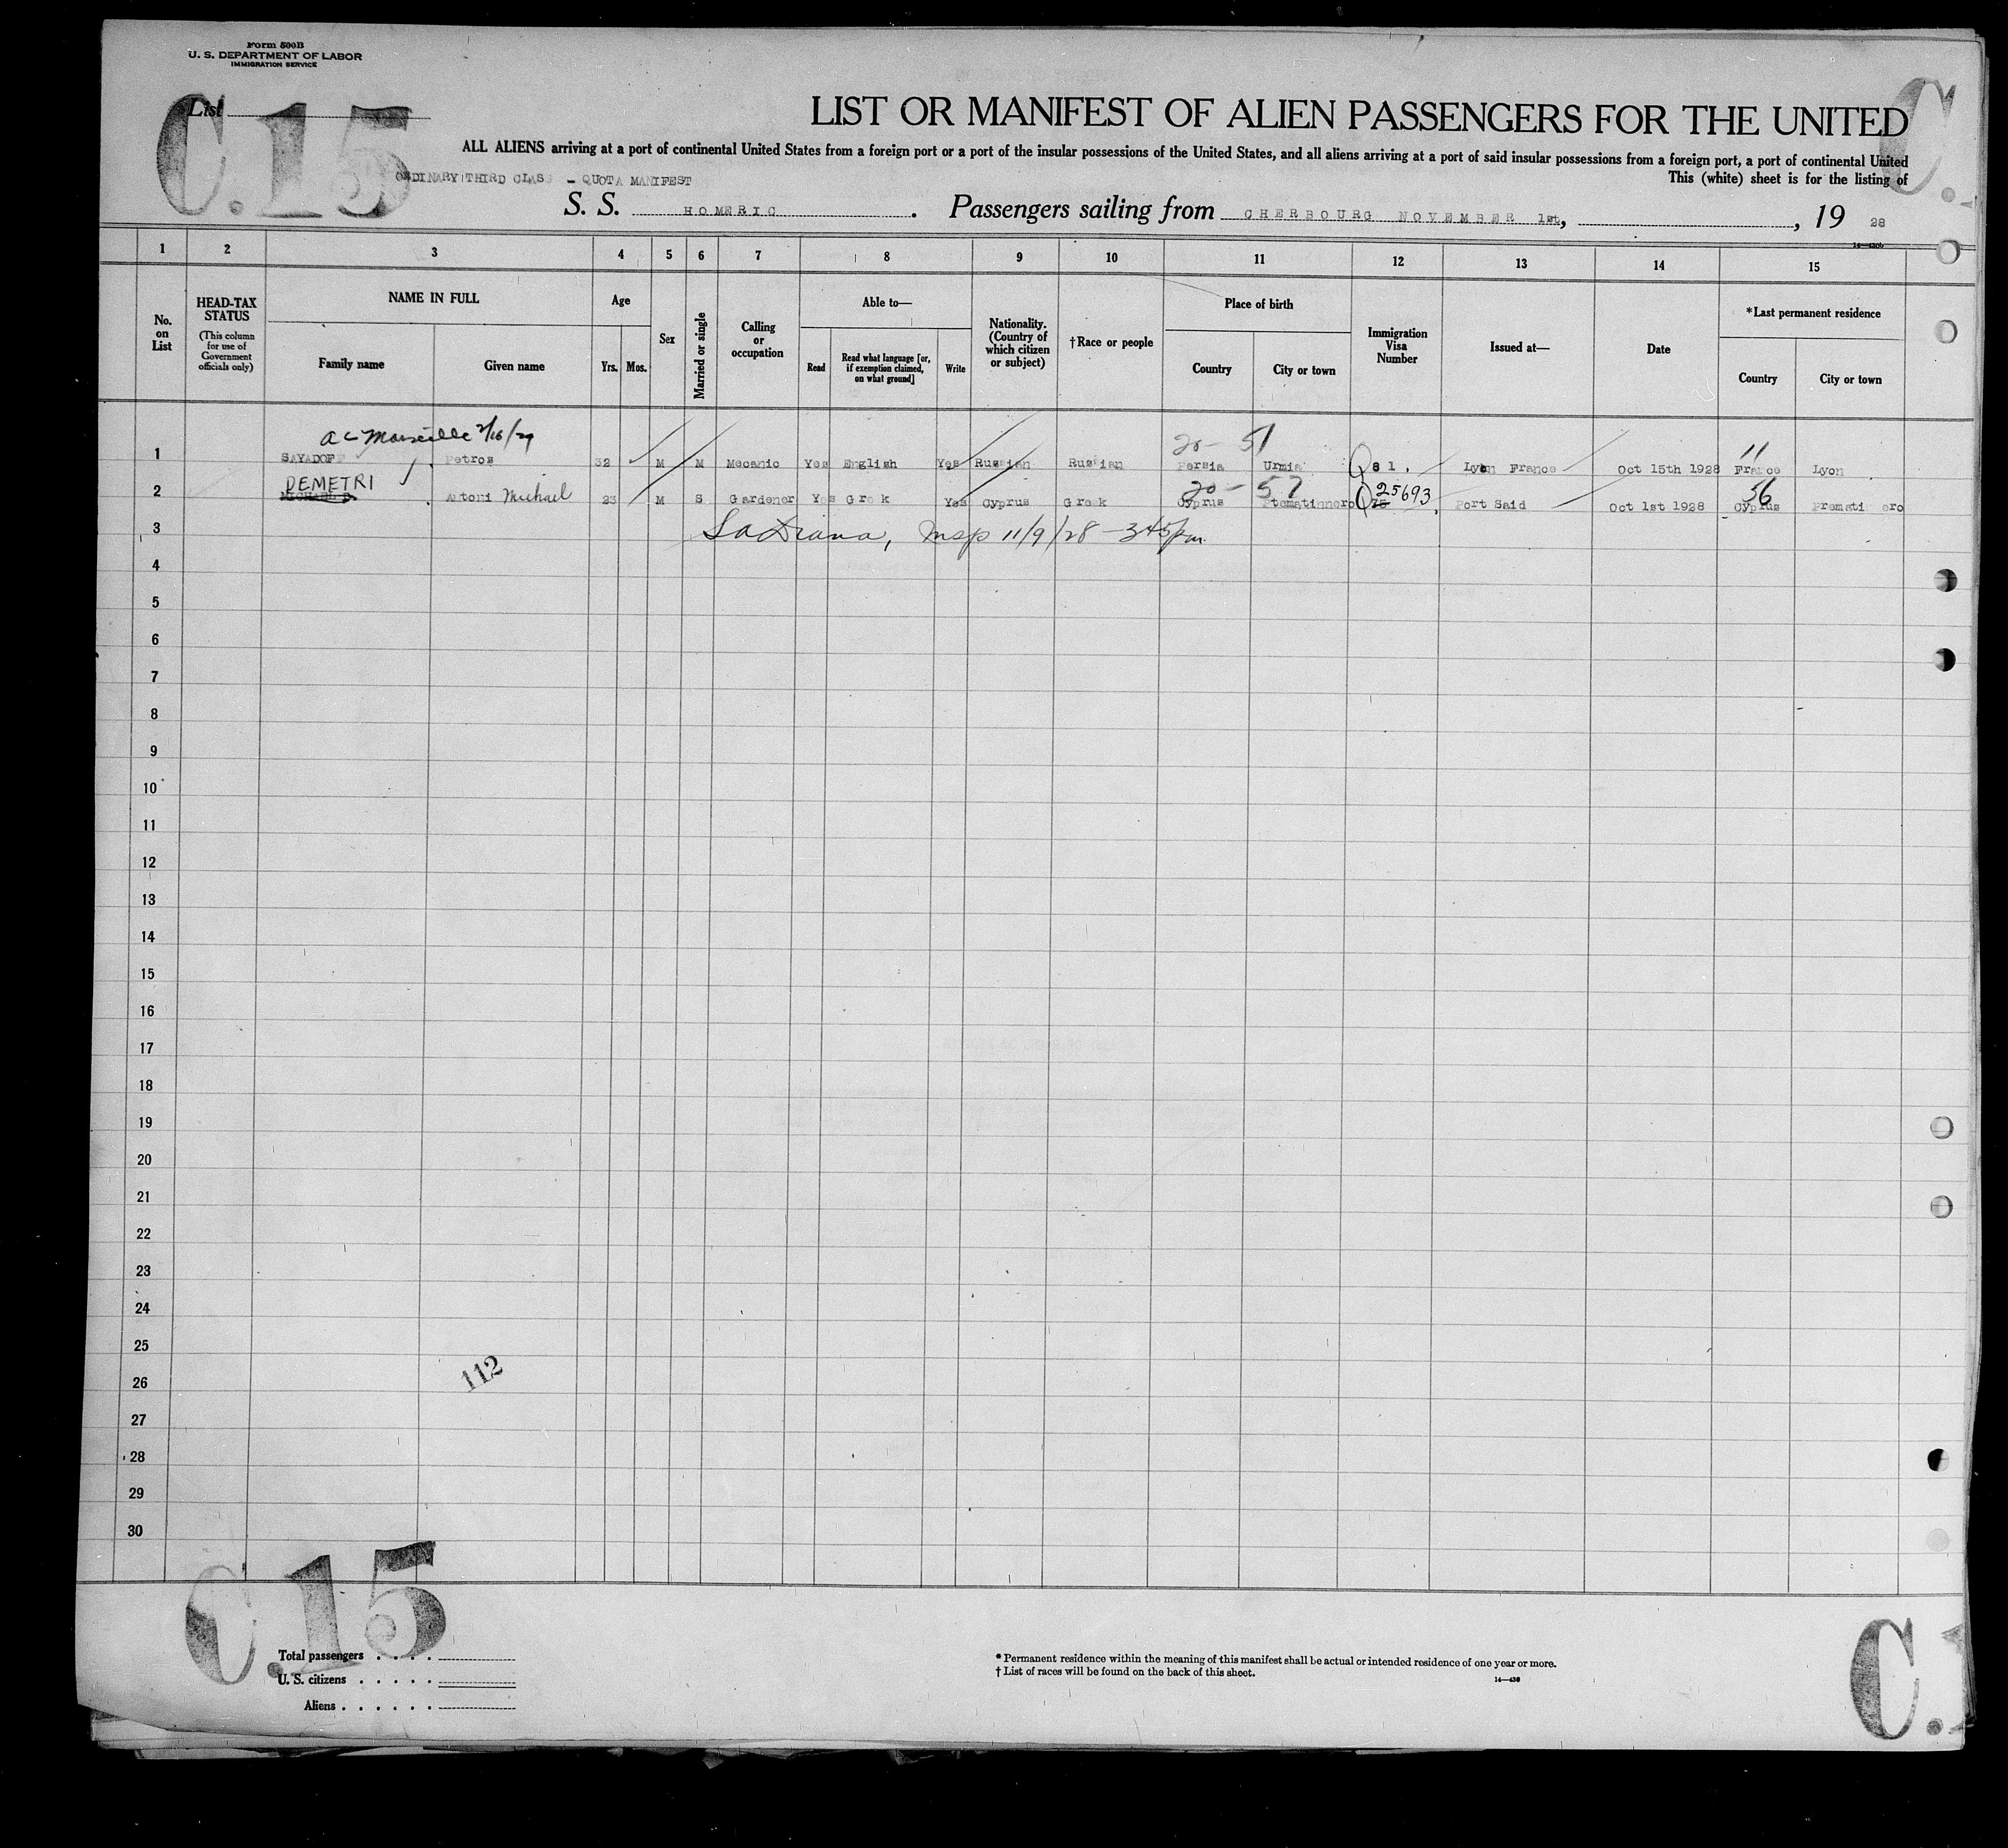 Form 500B
U. S. DEPARTMENT OF LABOR
IMMIGRATION SERVICE
List
C.15
C.
LIST OR MANIFEST OF ALIEN PASSENGERS FOR THE UNITED
ALL ALIENS arriving at a port of continental United States from a foreign port or a port of the insular possessions of the United States, and all aliens arriving at a port of said insular possessions from a foreign port, a port of continental United
This (white) sheet is for the listing of
ORDINARY THIRD CLASS - QUOTA MANIFEST
S. S. HOMERIC. Passengers sailing from CHERBOURG NOVEMBER 1st, , 19 28
1 2 3 4 5 6 7 8 9 10 11 12 13 14 15
No. on List
HEAD-TAX STATUS
(This column for use of Government officials only)
NAME IN FULL
Family name
Given name
Age
Yrs. Mos.
Sex
Married or single
Calling or occupation
Able to—
Read
Read what language [or, if exemption claimed, on what ground]
Write
Nationality. (Country of which citizen or subject)
†Race or people
Place of birth
Country
City or town
Immigration Visa Number
Issued at—
Date
*Last permanent residence
Country
City or town
Marseille 2/16/29
20- 51
11
1 SAYADOFF Petros 32 M M Mecanic Yes English Yes Russian Russian Persia Urmia Q 81. Lyon France Oct 15th 1928 France Lyon
DEMETRI
20- 57
25693
56
2 Antoni Michael 23 M S Gardener Yes Greek Yes Cyprus Greek Cyprus Q Port Said Oct 1st 1928 Cyprus
3 11/9/28 - 345pm
4
5
6
7
8
9
10
11
12
13
14
15
16
17
18
19
20
21
22
23
24
25
26
112
27
28
29
30
C.15
C.
Total passengers
U. S. citizens
Aliens
* Permanent residence within the meaning of this manifest shall be actual or intended residence of one year or more.
† List of races will be found on the back of this sheet.
14—430